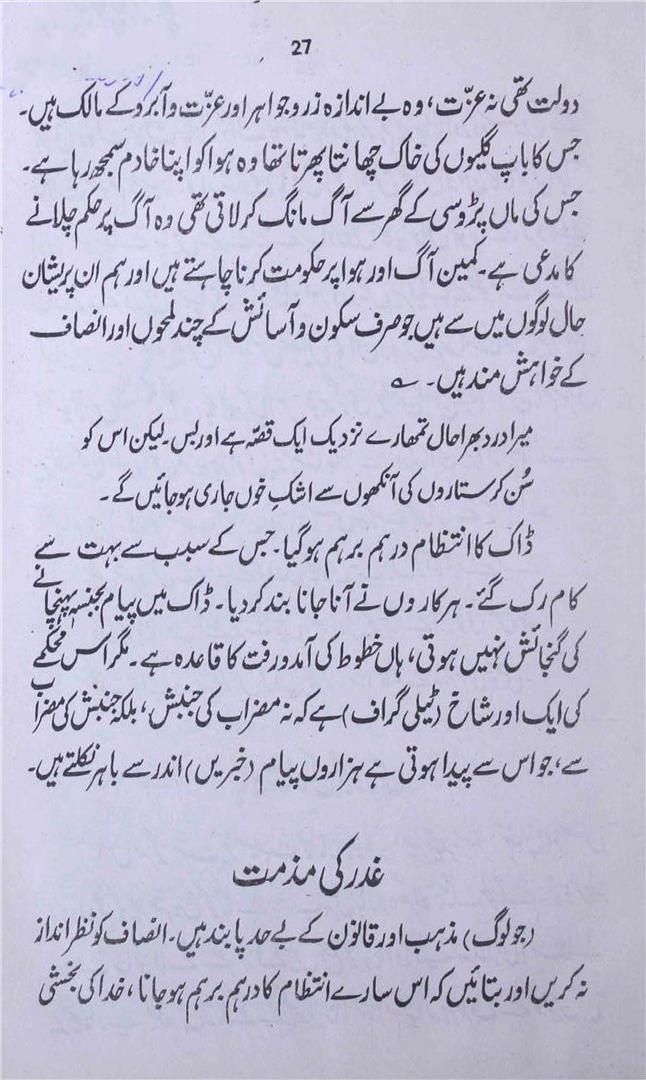 27
دولت تھی نہ عزّت، وہ بے اندازہ زر و جواہر اور عزّت و آبرو کے مالک ہیں۔
جس کا باپ گلیوں کی خاک چھانتا پھرتا تھا وہ ہوا کو اپنا خادم سمجھ رہا ہے۔
جس کی ماں پڑوسی کے گھر سے آگ مانگ کر لاتی تھی وہ آگ پر حکم چلانے
کا مدعی ہے۔ کمین آگ اور ہوا پر حکومت کرنا چاہتے ہیں اور ہم ان پریشان
حال لوگوں میں سے ہیں جو صرف سکون و آسائش کے چند لمحوں اور انصاف
کے خواہش مند ہیں۔ ؎
میرا درد بھرا حال تمھارے نزدیک ایک قصّہ ہے اور بس۔ لیکن اس کو
سُن کر ستاروں کی آنکھوں سے اشکِ خوں جاری ہو جائیں گے۔
ڈاک کا انتظام درہم برہم ہو گیا۔ جس کے سبب سے بہت سے
کام رک گئے۔ ہرکاروں نے آنا جانا بند کر دیا۔ ڈاک میں پیام بجنسہٖ پہنچانے
کی گنجائش نہیں ہوتی، ہاں خطوط کی آمد و رفت کا قاعدہ ہے۔ مگر اس محکمے
کی ایک اور شاخ (ٹیلی گراف) ہے کہ نہ مضراب کی جنبش، بلکہ جنبش کی مضراب
سے، جو اس سے پیدا ہوتی ہے ہزاروں پیام (خبریں) اندر سے باہر نکلتے ہیں۔
غدر کی مذمت
(جو لوگ) مذہب اور قانون کے بے حد پابند ہیں۔ انصاف کو نظر انداز
نہ کریں اور بتائیں کہ اس سارے انتظام کا درہم برہم ہو جانا، خدا کی بخشی